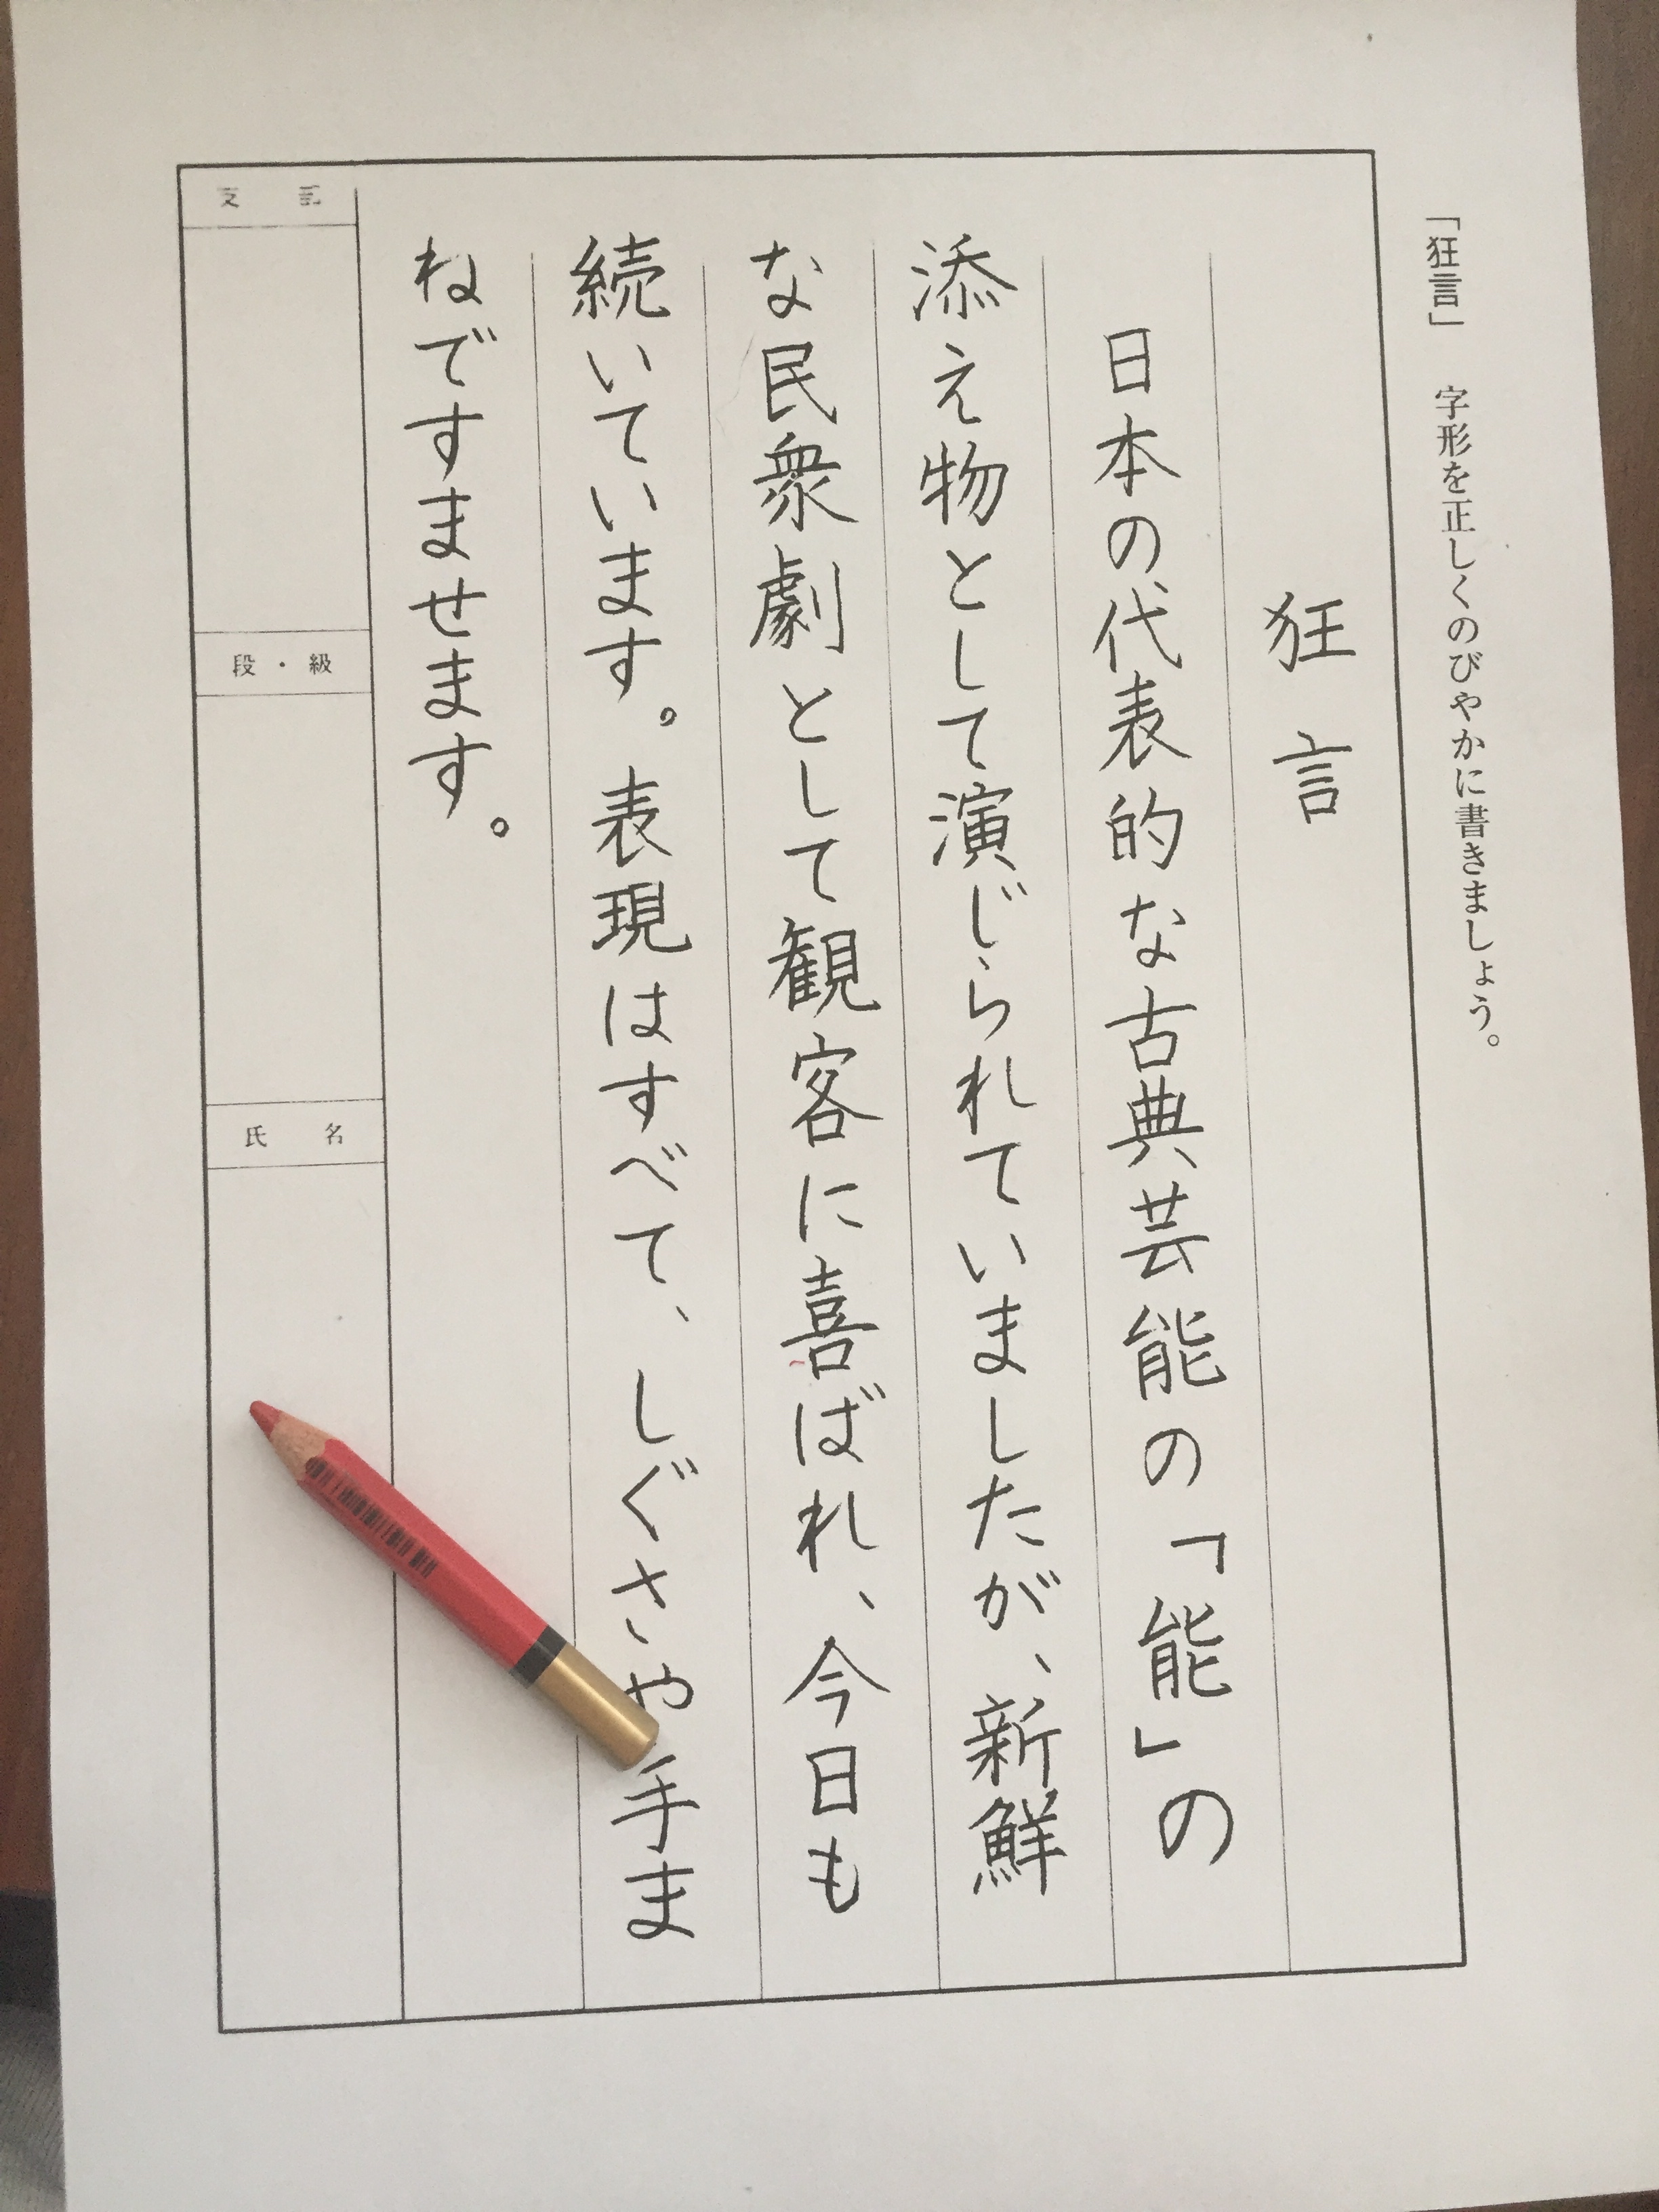 「狂言」 字形を正しくのびやかに書きましょう。
狂言
日本の代表的な古典芸能の「能」の
添え物として演じられていましたが、新鮮
な民衆劇として観客に喜ばれ、今日も
続いています。表現はすべて、しぐさや手ま
ねですませます。
段・級
氏 名